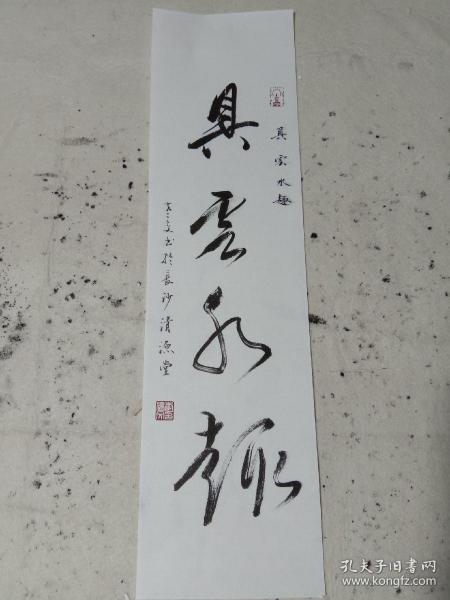 具雲水趣
具雲水趣
书於長沙清源堂
孔夫子旧书网
www.kongfz.com